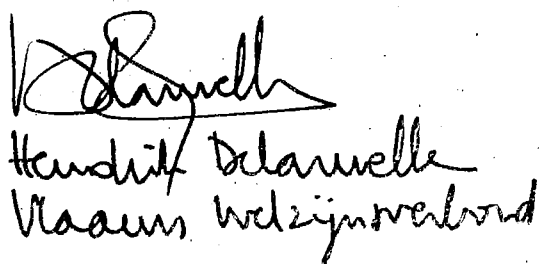 Hendrik Delaruelle
Vlaams Welzijnsverbond